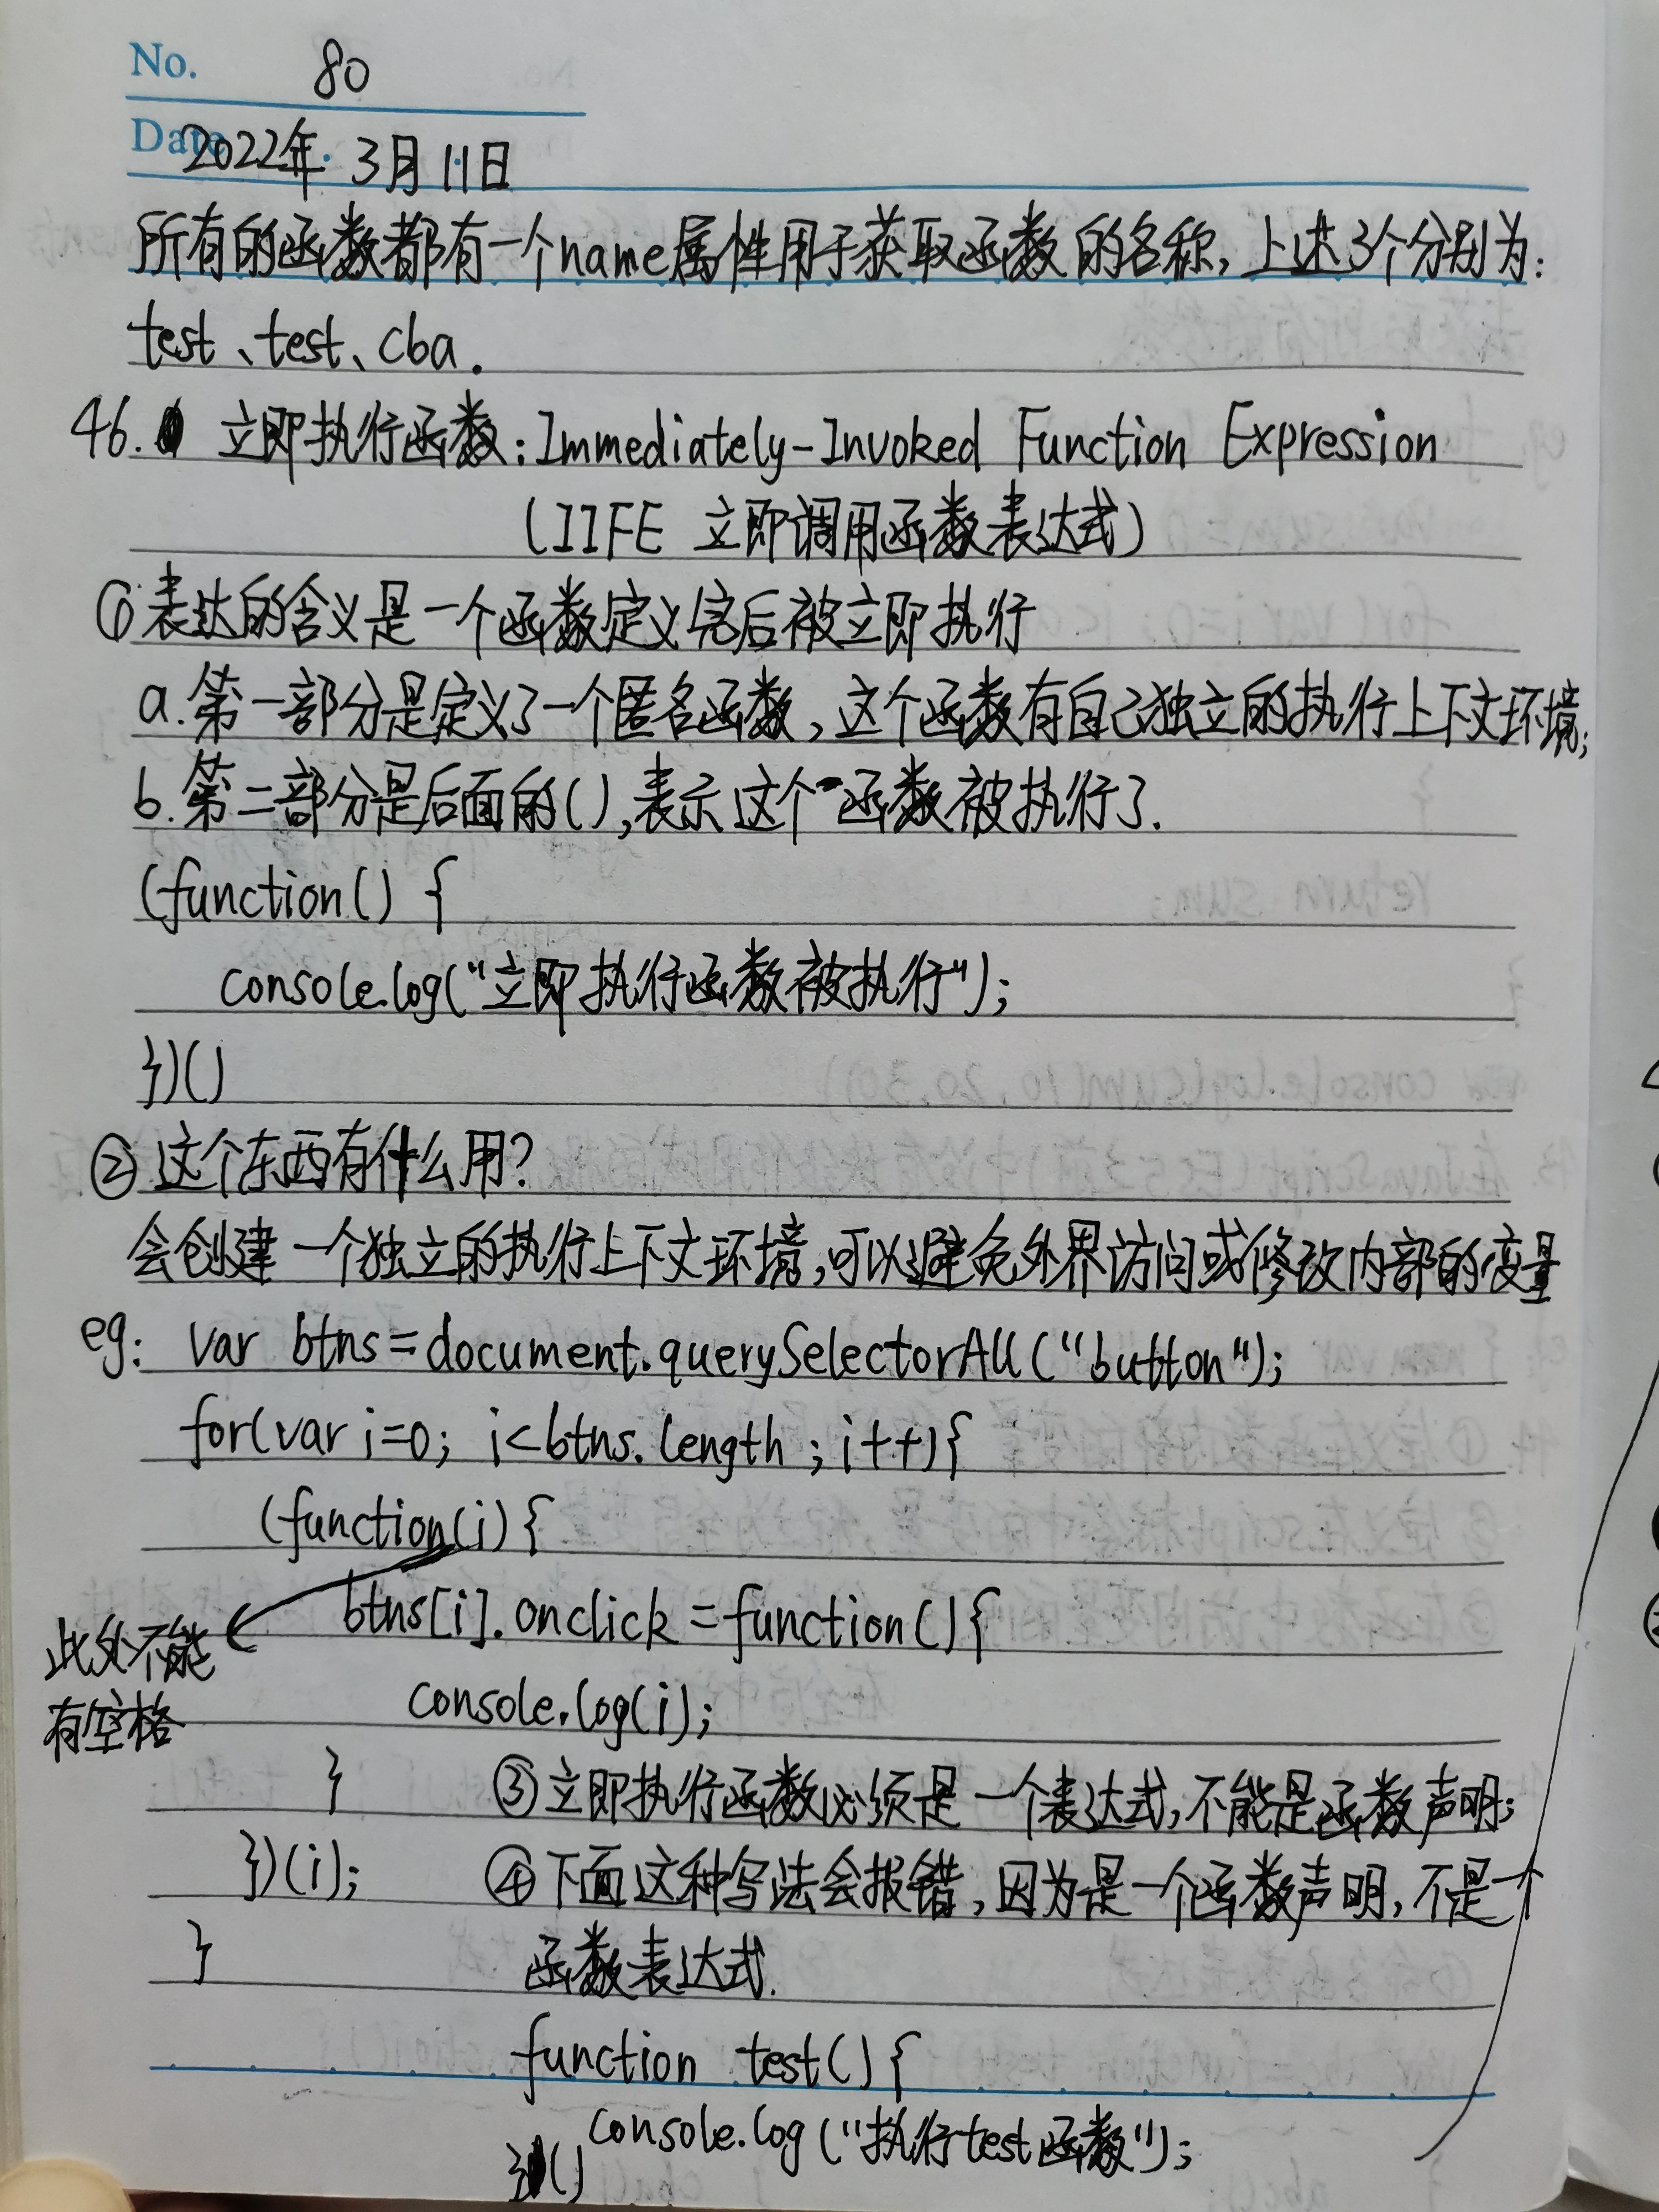 No. 80
Date. 2022年 3月11日
所有的函数都有一个name属性用于获取函数的名称,上述3个分别为:
test、test、cba.
46. 立即执行函数:Immediately-Invoked Function Expression
(IIFE 立即调用函数表达式)
①表达的含义是一个函数定义完后被立即执行
a.第一部分是定义了一个匿名函数,这个函数有自己独立的执行上下文环境;
b.第二部分是后面的(),表示这个函数被执行了.
(function() {
console.log("立即执行函数被执行");
})()
②这个东西有什么用?
会创建一个独立的执行上下文环境,可以避免外界访问或修改内部的变量
eg: var btns=document.querySelectorAll("button");
for(var i=0; i<btns.length; i++){
(function(i){
btns[i].onclick=function(){
此处不能
有空格
console.log(i);
}
③立即执行函数必须是一个表达式,不能是函数声明;
})(i);
④下面这种写法会报错,因为是一个函数声明,不是一个
}
函数表达式.
function test(){
console.log("执行test函数");
}()